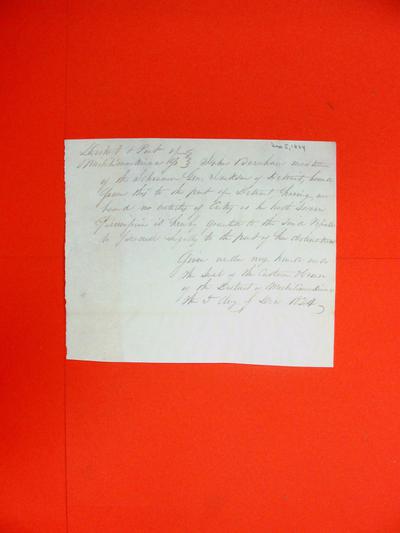 Dec 5, 1824
District & Port of
Michilimackinac
John Burnham master
of the Schooner Gen. Jackson of Detroit, bound
from this to the port of Detroit having on
board no articles of Entry as he hath Sworn
Permission is hereby granted to the said Vessel
to proceed to the port of her destination
Given under my hand and
the Seal of the Custom House
of the District of Michilimackinac
the 5 day of Dec 1824